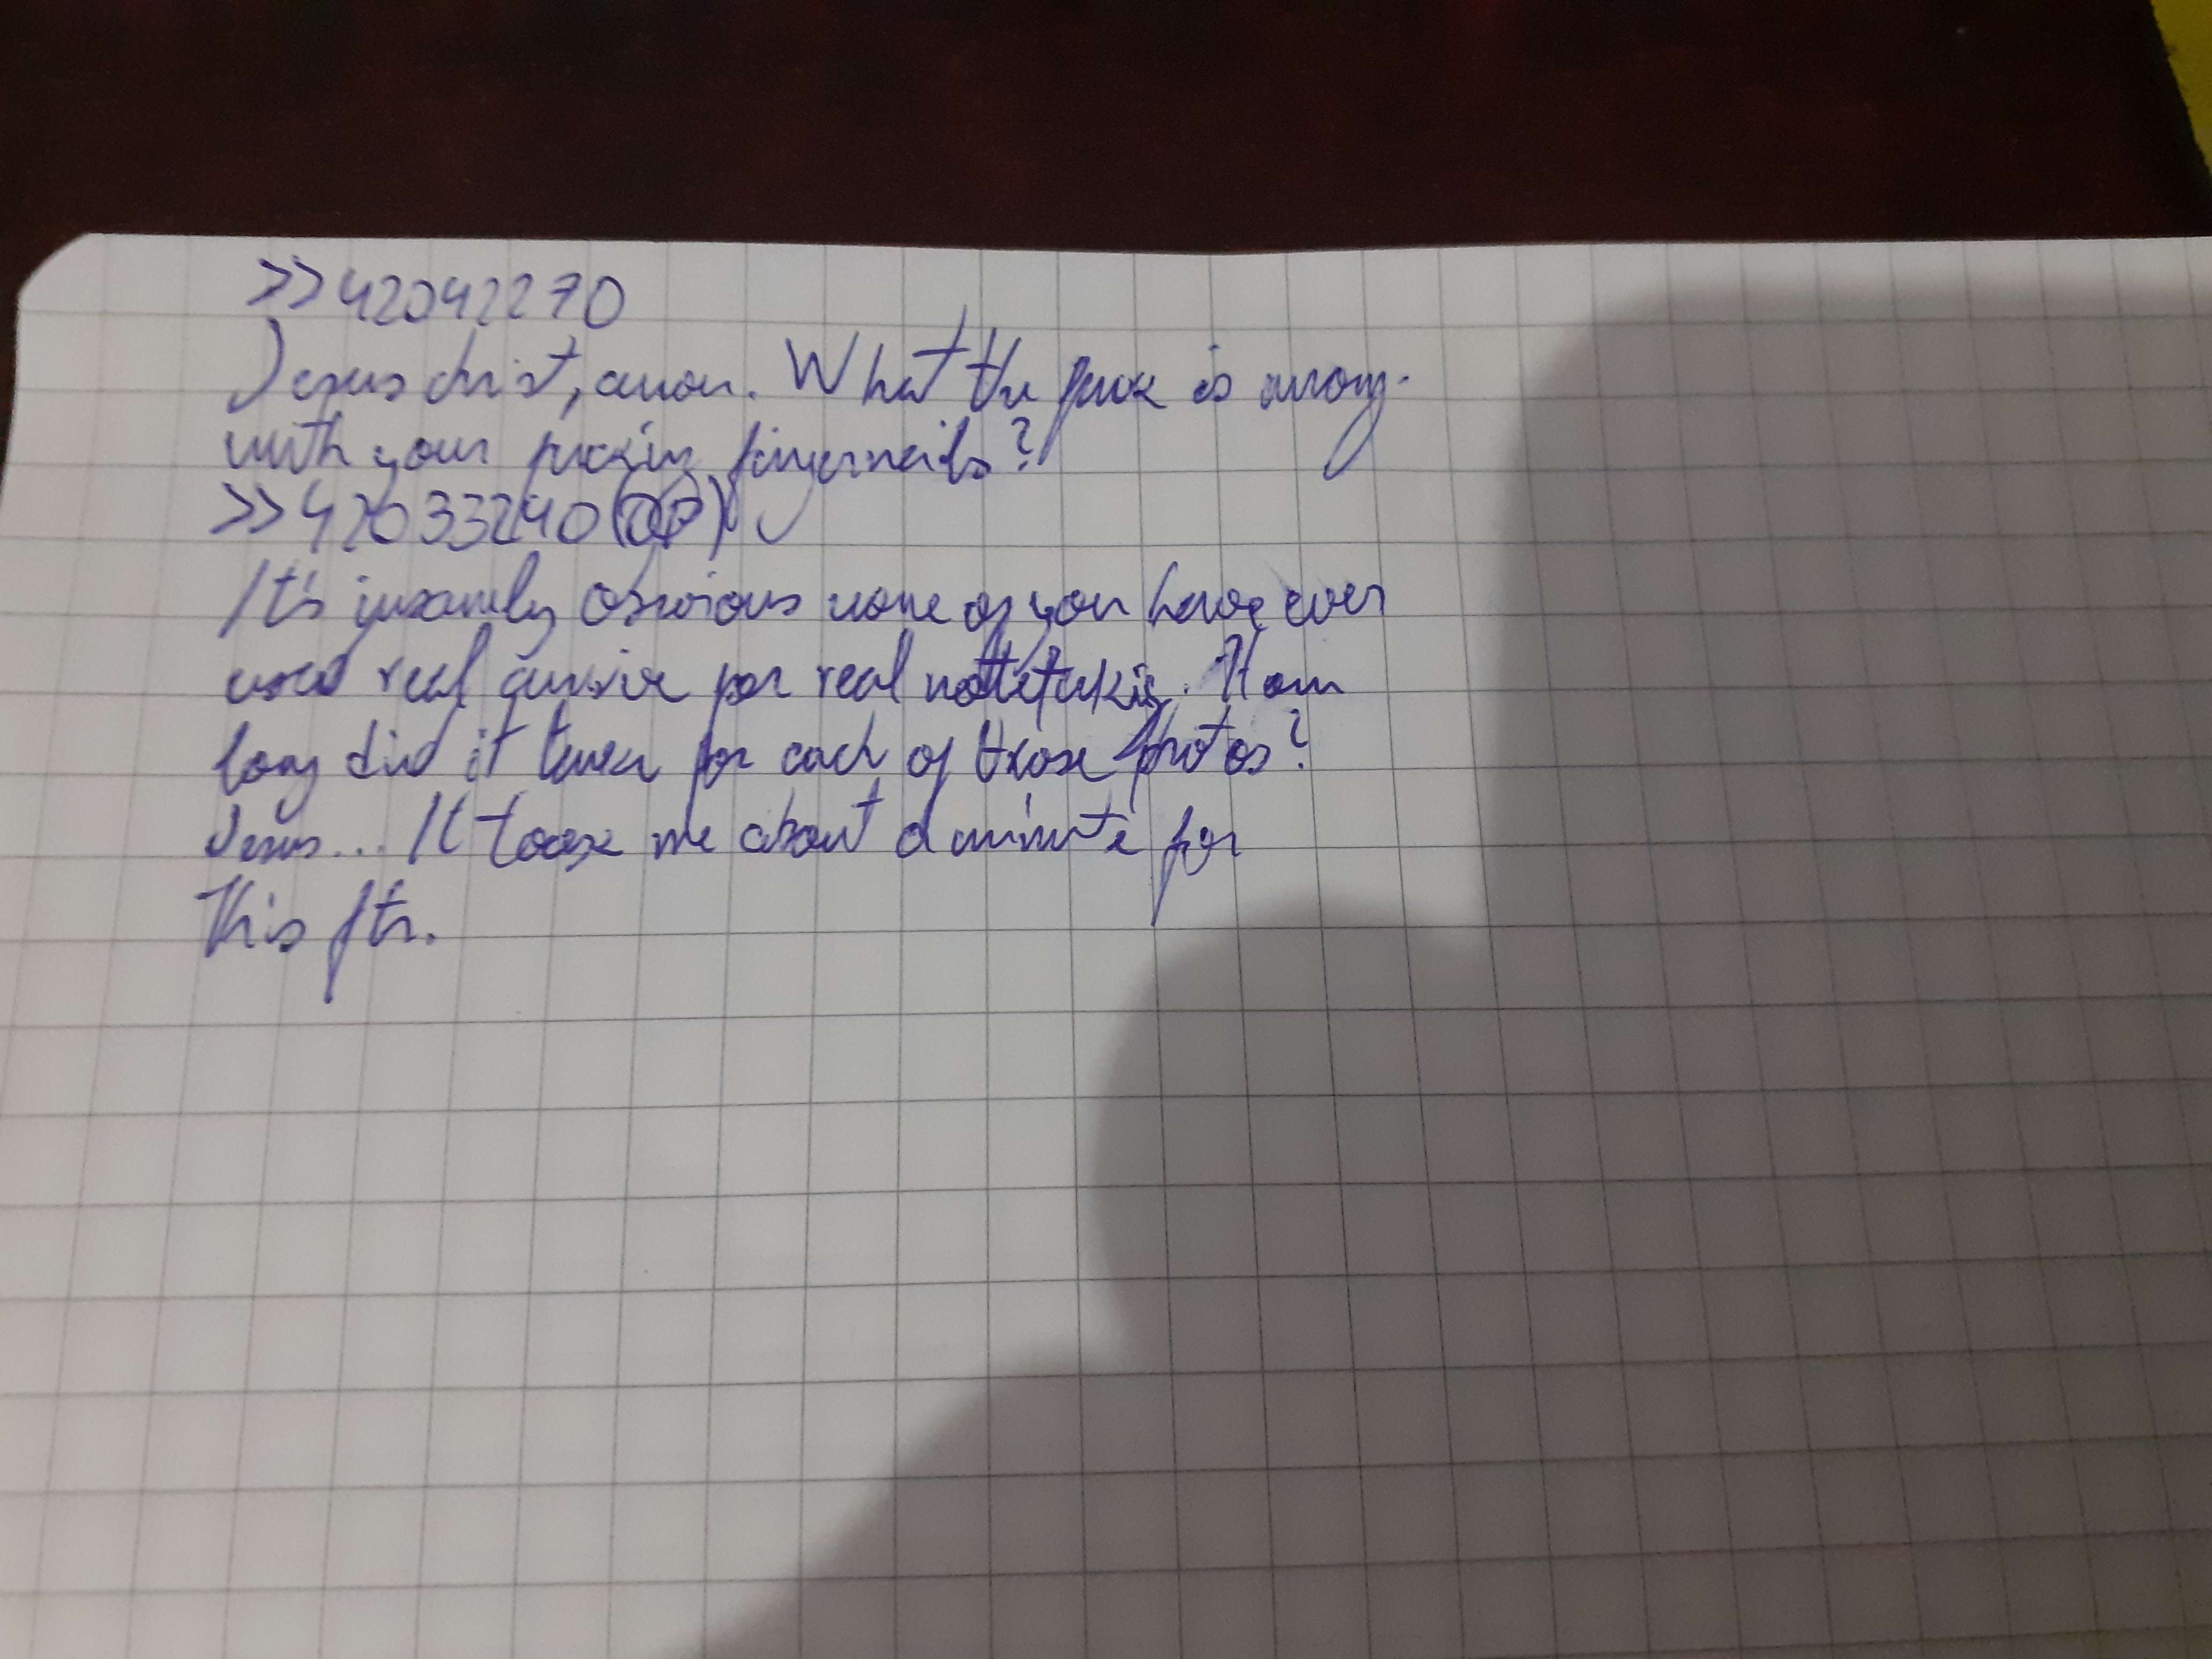 >>42042270
Jesus christ, anon. What the fuck is wrong
with your fuckin fingernails?
>>42033240 (OP)
It's insanely obvious none of you have ever
used real cursive for real nottetakig. How
long did it taken for each of those photos?
Jesus... It took me about a minute for
this ftr.